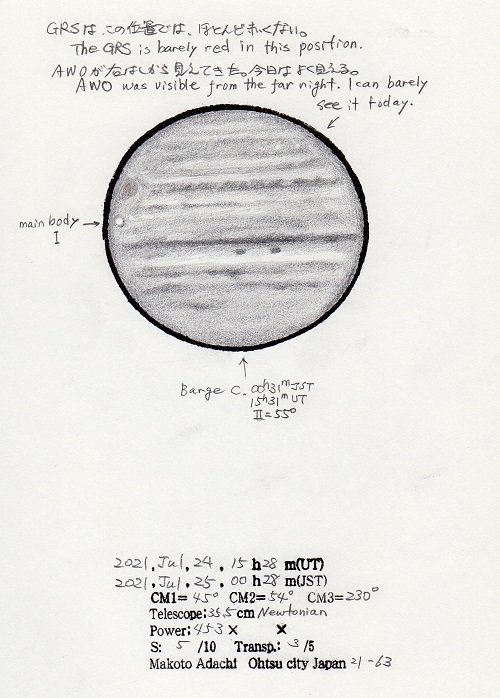 GRSは、この位置では、ほとんど赤くない。
The GRS is barely red in this position.
AWOが右はしから見えてきた。今日はよく見える。
AWO was visible from the far right. I can barely
see it today.
main body
I
Barge C. 00h31m JST
15h31m UT
II=55°
2021, Jul, 24, 15 h 28 m(UT)
2021, Jul, 25, 00 h 28 m(JST)
CM1= 45° CM2= 54° CM3= 230°
Telescope: 35.5 cm Newtonian
Power: 453 × ×
S: 5 /10 Transp.: 3 /5
Makoto Adachi Ohtsu city Japan 21-63